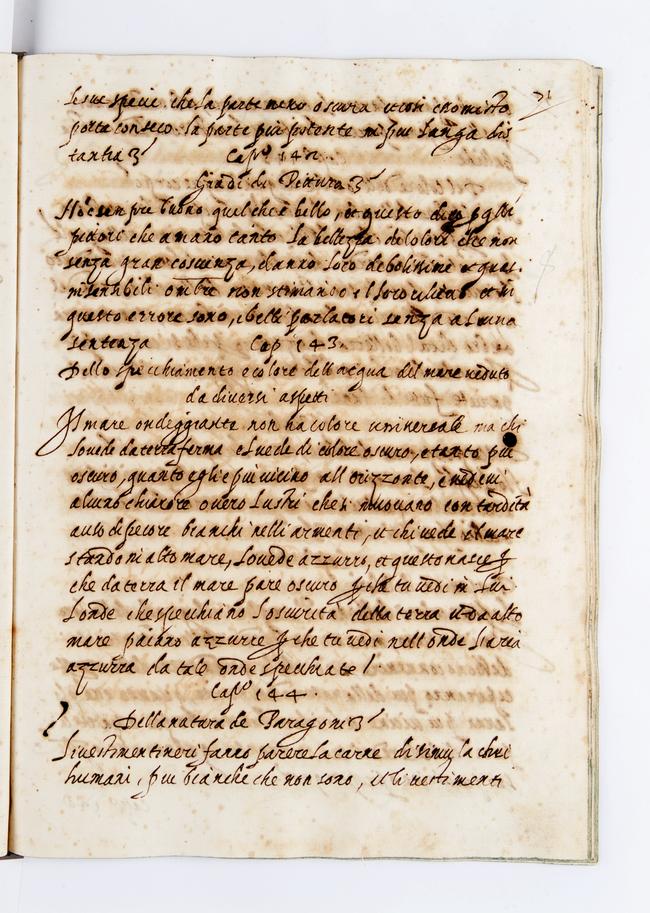 le sue specie che la parte meno oscura et così ero misto 71
porta con seco la parte più potente in piu lunga dis
tantia
Cap.º 142.
Gradi di Pittura
Nō è sempre buono quel che è bello, et questo dico p qlli
pittori che amano tanto la bellezza de colori che non
senza gran coscienza, danno loro debolissime et quasi
insensibili ombre non stimando il loro rilievo et in
questo errore sono, i belli parlatori senza alcuna
sentenza
Cap. 143
Dello specchiamento e colore dell acqua del mare veduto
da diversi aspetti
Il mare ondeggiante non ha colore universale ma chi
lo vede da terra ferma el vede di colore oscuro, e tanto più
oscuro, quanto egli è più vicino all orizzonte, e vedevi
alcuno chiarore overo lustri che si muovano con tardità
a uso di pecore bianchi nelli armenti, et chi vede il mare
stando in alto mare, lo vede azzurro, et questo nasce p
che da terra il mare pare oscuro p che tu vedi in lui
l onde che specchiano l oscurità della terra et da alto
mare paiano azzurre p che tu vedi nell onde l aria
azzurra da tale onde specchiate
Cap.º 144.
Della natura de Paragoni
Li vestimenti neri fanno parere la carne de simulachri
humani, piu bianche che non sono, et li vestimenti